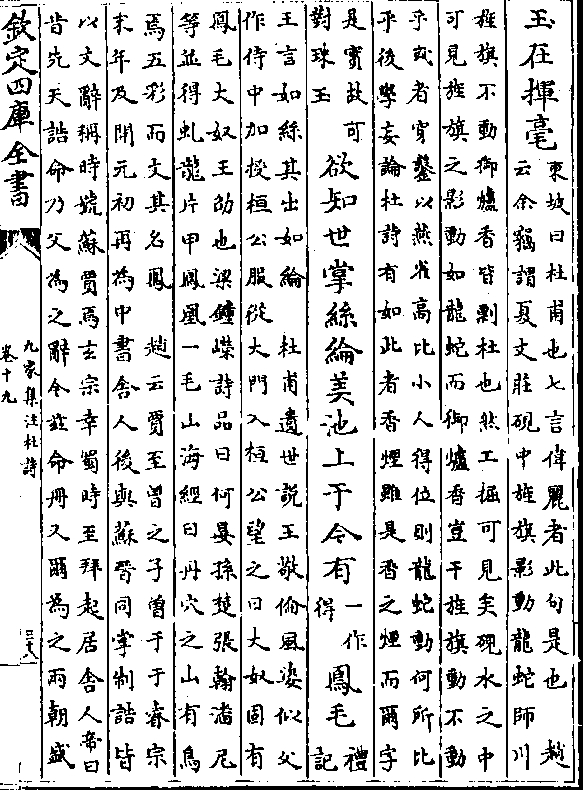 玉在揮毫
東坡曰杜甫也七言偉麗者此句是也 趙
云余竊謂夏文莊硯中旌旗影動龍蛇師川
旌旗不動御爐香皆剽杜也然工掘可見矣硯水之中
可見旌旗之影動如龍蛇而御爐香豈干旌旗動不動
乎或者穿鑿以燕雀高比小人得位則龍蛇動何所比
乎後學妄論杜詩有如此者香煙雖是香之煙而爾字
是實故可
對珠玉
欲知世掌絲綸美池上于今有
一作
得
鳳毛
禮
記
王言如絲其出如綸 杜甫遺世說王敬倫風姿似父
作侍中加授桓公服從大門入桓公望之曰大奴固有
鳳毛大奴王劭也梁鍾嶸詩品曰何晏孫楚張翰潘尼
等並得虬龍片甲鳳凰一毛山海經曰丹穴之山有鳥
焉五彩而文其名鳳 趙云賈至曾之子曾于于睿宗
末年及開元初再為中書舍人後與蘇晉同掌制誥皆
以文辭稱時號蘇賈焉玄宗幸蜀時至拜起居舍人帝曰
昔先天誥命乃父為之辭今茲命冊又爾為之兩朝盛
欽定四庫全書
九家集注杜詩
卷十九